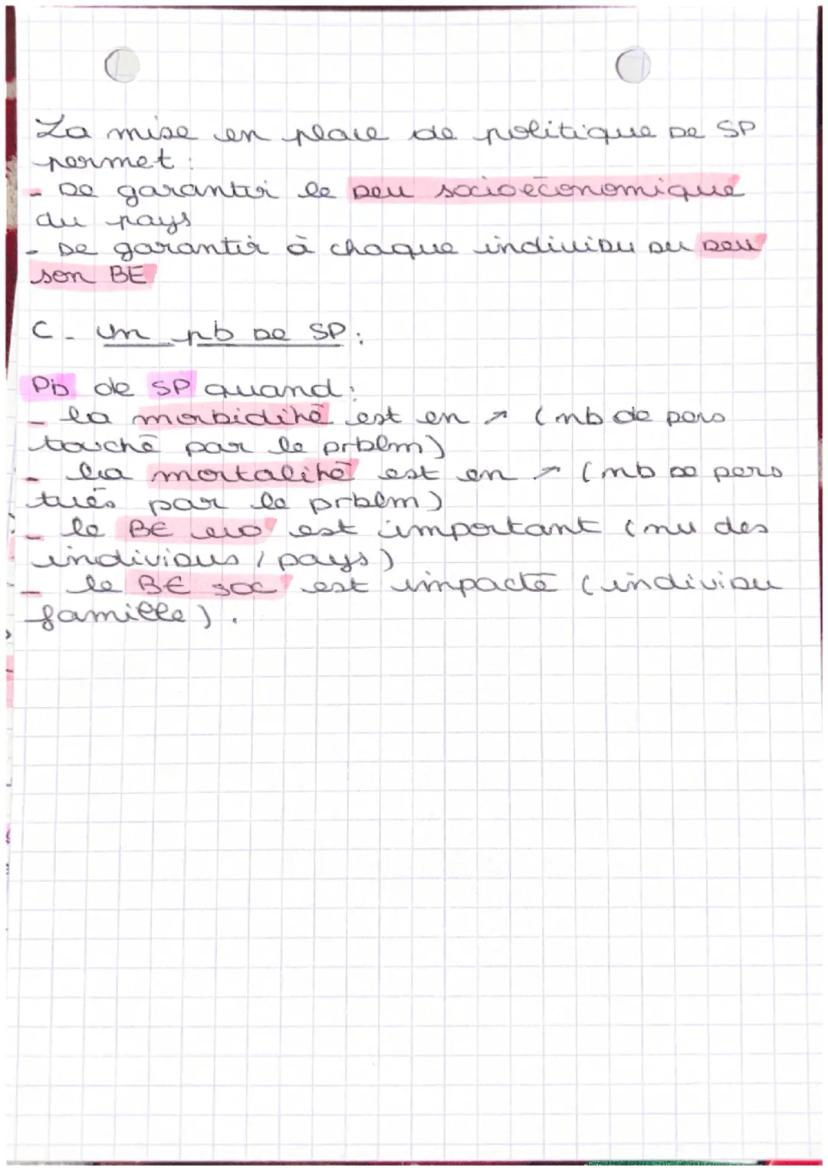 La mise en place de politique de SP
permet :
- De garantir le Deu socioéconomique
du pays
- De garantir à chaque individu du Deu
son BE
C - un pb de SP :
Pb de SP quand :
- la morbidité est en ↗ (nb de pers
touché par le prblm)
- la mortalité est en ↗ (nb de pers
tués par le prblm)
- le BE eco est important (nu des
individus / pays)
- le BE soc est impacté (individu
famille).